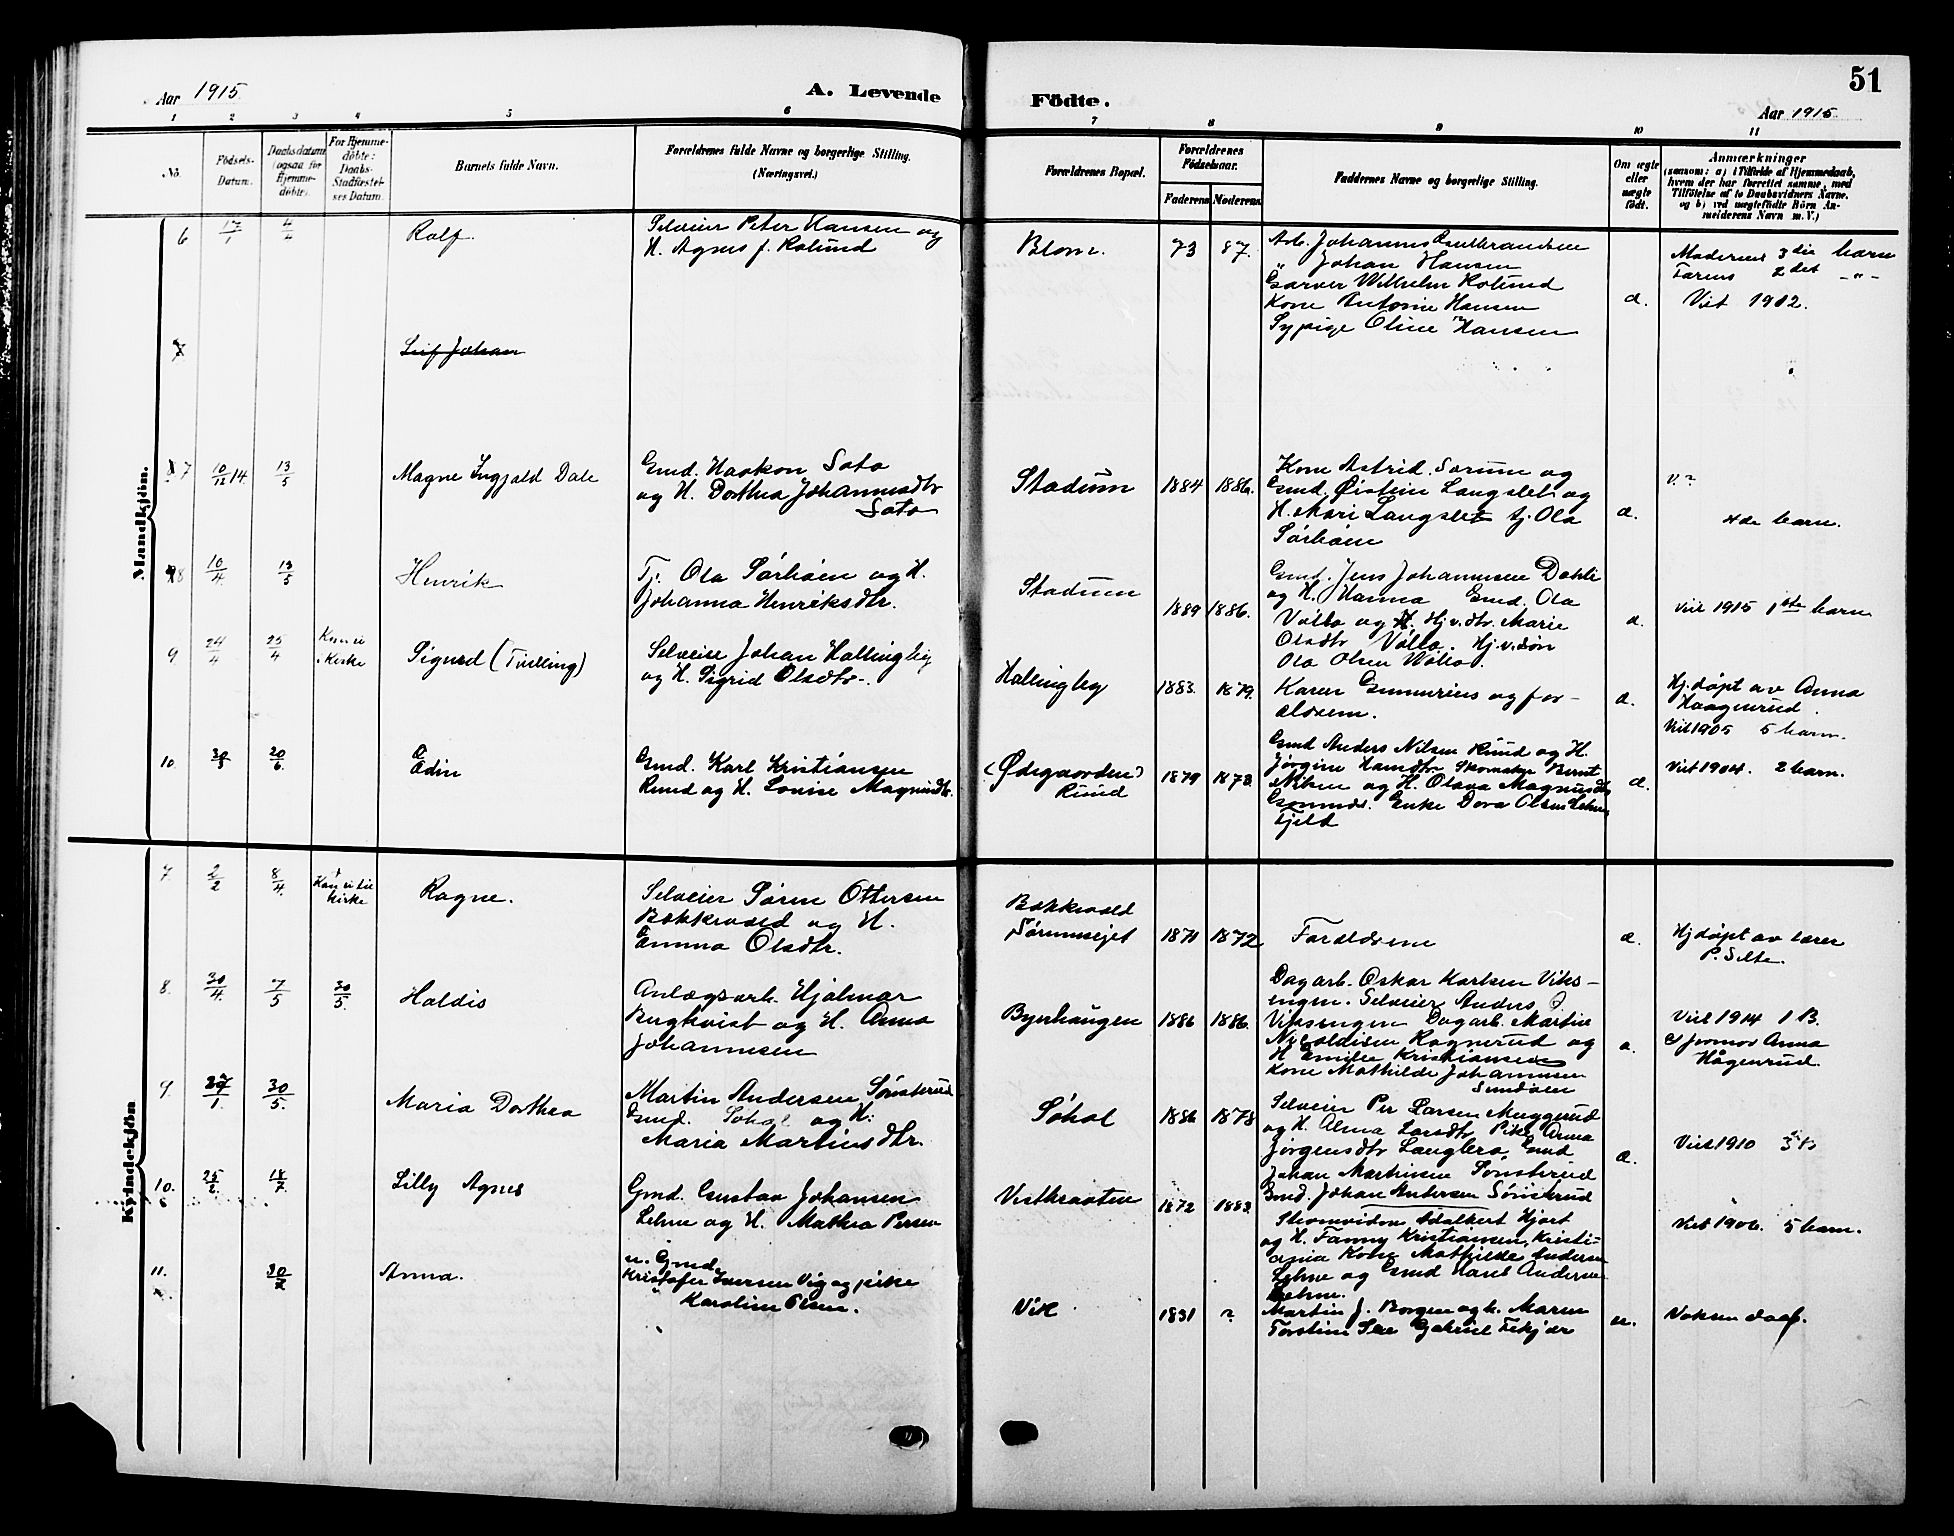 Aar 1915
A. Levende
Födte.
Aar 1915.
51
1 2 3 4 5 6 7 8 9 10 11
No.
Födsels-
Datum.
Daabsdatum
(ogsaa for
Hjemme-
döbte).
For Hjemme-
döbte:
Daabs-
Stadfæstel-
ses Datum.
Barnets fulde Navn.
Forældrenes fulde Navne og borgerlige Stilling.
(Næringsvei.)
Forældrenes Bopæl.
Forældrenes
Födselsaar.
Faderens
Moderens
Faddernes Navne og borgerlige Stilling.
Om ægte
eller
uægte
födt.
Anmærkninger
(saasom: a) i Tilfælde af Hjemmedaab,
hvem der har forrettet samme, med
Tilföielse af to Daabsvidners Navne,
og b) ved uægtefödte Börn An-
melderens Navn m. V.)
Mandkjön.
6 17/1 4/4 Rolf.
Selveier Peter Hansen og
H. Agnes f. Rolund
Blom. 73 87.
Arb. Johannes Gulbrandsen
" Johan Hansen
Garver Wilhelm Rolund
Kone Antonie Hansen
Sypige Oline Hansen
æ.
Moderens 3die barn
Farens 2det -"-
Viet 1912.
Leif Johan
7 10/12 14 13/5 Magne Ingjald Dale
Gmd. Haakon Soto
og H. Dorthea Johannesdtr
Soto
Stadum 1884 1886.
Kone Astrid Sorum og
Gmd. Øistein Langslet og
H. Mari Langslet tj. Ola
Sørhøen
æ.
V. ?
4de barn.
8 10/4 13/5 Henrik
Tj. Ola Sørhøen og H.
Johanna Henriksdtr.
Stadum 1889 1886.
Gmd. Jens Johannesen Dahli
og H. Hanna Gmd. Ola
Vøllo og H. Hj.v.dtr. Marie
Olsdtr Vøllo. Hj.v.søn
Ola Olsen Vøllo.
æ.
Viet 1915 1ste barn
9 24/4 25/4 Kan ei
i Kirke
Sigurd (Tvilling)
Selveier Johan Hallingby
og H. Sigrid Olsdtr.
Hallingby 1883. 1879.
Karen Gunnerius og for-
ældrene.
æ.
Hj. døpt av Anna
Haagenrud.
Viet 1905 5 barn.
10 30/3 20/6. Edin
Gmd. Karl Kristiansen
Ruud og H. Lovise Magnusdtr.
(Ødegaarden)
Ruud
1879 1878.
Gmd Anders Nilsen Ruud og H.
Jørgine Hansdtr. Skomaker Bernt
Nilsen og H. Olava Magnusdtr
Enke Dora Olsen Lehne
fjeld
æ.
Viet 1904. 2 barn.
Kvindekjön
7. 2/2 8/4. Kan ei til
kirke
Ragne.
Selveier Søren Ottersen
Bakkevold og H.
Emma Olsdtr.
Bakkevold
Sørumsejet
1871 1872
Forældrene
æ.
Hj døpt av lærer
P. Selte.
8. 30/4. 7/5 30/5. Haldis
Anlægsarb. Hjalmar
Bergkvist og H. Anna
Johannesen
Byerhaugen 1886 1886.
Dagarb. Oskar Karlsen Viks-
engen. Selveier Anders J.
Viksengen Dagarb. Martin
Ragnerud og
H Emilie Kristiansen
Kone Mathilde Johannesen
Sundøen
æ.
Viet 1914 1 B.
Gjormor Anna
Hågenrud.
9. 27/1. 30/5. Maria Dorthea
Martin Andersen Sønsterud
Gmd. Søhol og H.
Maria Martinsdtr.
Søhol 1886 1878
Selveier Per Larsen Muggerud
og H. Alma Larsdtr Pike Anna
Jørgensdtr Langbra, Gmd
Johan Martinsen Sønsterud
Gmd. Johan Andersen Sønsterud
æ.
Viet 1910 3 B
10. 25/2. 18/7. Lilly Agnes
Gmd. Gustav Johansen
Lehne og H. Mathea Persen
Vestbraaten 1872 1882.
Adalbert Hjort
og H. Fanny Kristiansen, Kristi-
ania Kone Mathilde Andersen
Lehne og Gmd Hans Andersen
Lehne.
Viet 1906. 5 barn.
11. Anna.
u. Gmd.
Kristofer Iversen Vig og pike
Karoline Olsen.
Vik 1831 ?
Martin J. Borgen og h. Maren
Torstine Gabriel Fekjær
u.
Voksen daab.